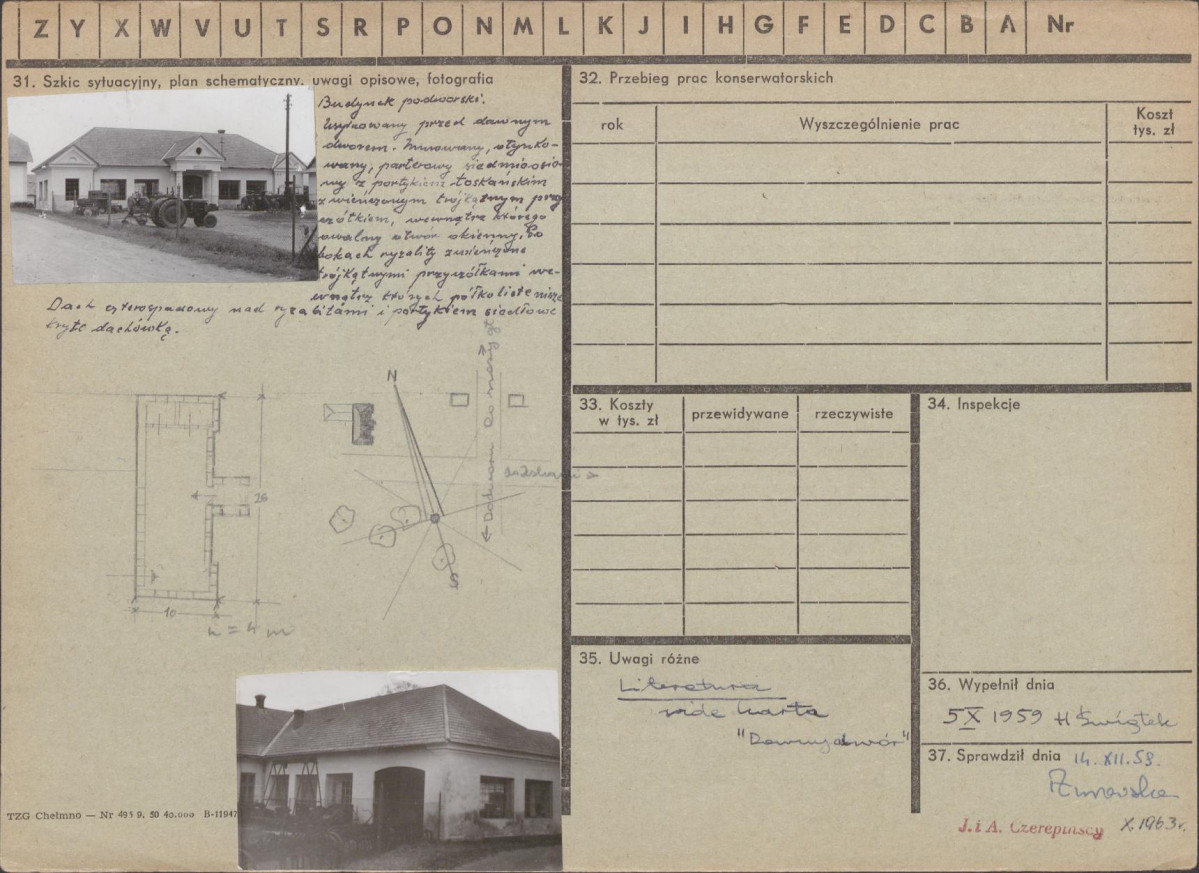 Z Y X W V U T S R P O N M L K J I H G F E D C B A Nr
31. Szkic sytuacyjny, plan schematyczny, uwagi opisowe, fotografia
Budynek podworski.
Usytuowany przed dawnym
dworem. Murowany, otynko-
wany, parterowy siedmioosio-
wy z portykiem toskańskim
zwieńczonym trójkątnym przy
czółkiem, wewnątrz którego
owalny otwór okienny. Po
bokach ryzality zwieńczone
trójkątnymi przyczółkami we-
wnątrz których półkoliste nisze
Dach czterospadowy nad ryzalitami i portykiem siodłowe
kryte dachówką.
N
S
26
10
h = 4 m
32. Przebieg prac konserwatorskich
rok
Wyszczególnienie prac
Koszt
tys. zł
33. Koszty
w tys. zł
przewidywane
rzeczywiste
34. Inspekcje
35. Uwagi różne
Literatura
vide karta
"Dawny dwór"
36. Wypełnił dnia
5 X 1959 H Świątek
37. Sprawdził dnia 14.XII.59.
J. i A. Czerepińscy X.1963r.
TZG Chełmno — Nr 495 9. 50 40.000 B-11947